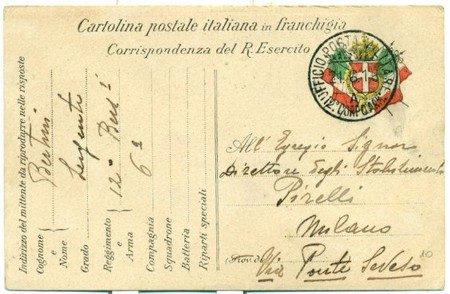 Cartolina postale italiana in franchigia
Corrispondenza del R Esercito
UFFICIO POSTA MILITARE
Indirizzo del mittente da riprodurre nelle risposte
Cognome e Nome Bertini
Grado Sergente
Reggimento e Arma 12º Bers!
Compagnia 6ª
Squadrone
Batteria
Riparti speciali
All' Egregio Signor
Direttore degli Stabilimento
Pirelli
Milano
Via Ponte Seveso
10